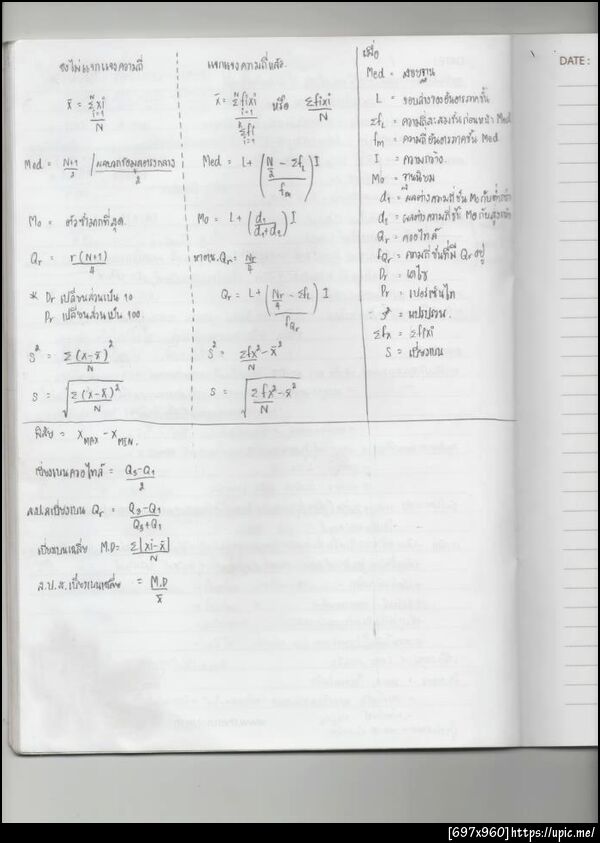 ยังไม่แจกแจงความถี่
x̄ = Σxi / N (i=1, N)
Med = N+1 / 2 / ผลบวกข้อมูลตรงกลาง / 2
Mo = ตัวซ้ำมากที่สุด
Qr = r(N+1) / 4
* Dr เปลี่ยนส่วนเป็น 10
Pr เปลี่ยนส่วนเป็น 100
S² = Σ(x-x̄)² / N
S = √(Σ(x-x̄)² / N)
แจกแจงความถี่แล้ว
x̄ = Σfixi / Σfi หรือ Σfixi / N
Med = L+((N/2 - ΣfL) / fm) I
Mo = L+(d1 / d1+d2) I
หาตน.Qr = Nr / 4
Qr = L+((Nr/4 - ΣfL) / fQr) I
S² = Σfx² / N - x̄²
S = √(Σfx² / N - x̄²)
เมื่อ
Med = มัธยฐาน
L = ขอบล่างของอันตรภาคชั้น
ΣfL = ความถี่สะสมชั้นก่อนหน้า Med
fm = ความถี่อันตรภาคชั้น Med
I = ความกว้าง
Mo = ฐานนิยม
d1 = ผลต่างความถี่ชั้น Mo กับต่ำกว่า
d2 = ผลต่างความถี่ชั้น Mo กับสูงกว่า
Qr = ควอไทล์
fQr = ความถี่ชั้นที่มี Qr อยู่
Dr = เดไซ
Pr = เปอร์เซ็นไท
S² = แปรปรวน
Σfx = Σfixi
S = เบี่ยงเบน
พิสัย = XMAX - XMEN.
เบี่ยงเบนควอไทล์ = Q3-Q1 / 2
ส.ป.ส.เบี่ยงเบน Qr = Q3-Q1 / Q3+Q1
เบี่ยงเบนเฉลี่ย M.D = Σ|xi-x̄| / N
ส.ป.ส.เบี่ยงเบนเฉลี่ย = M.D / x̄
DATE :
[697x960]https://upic.me/